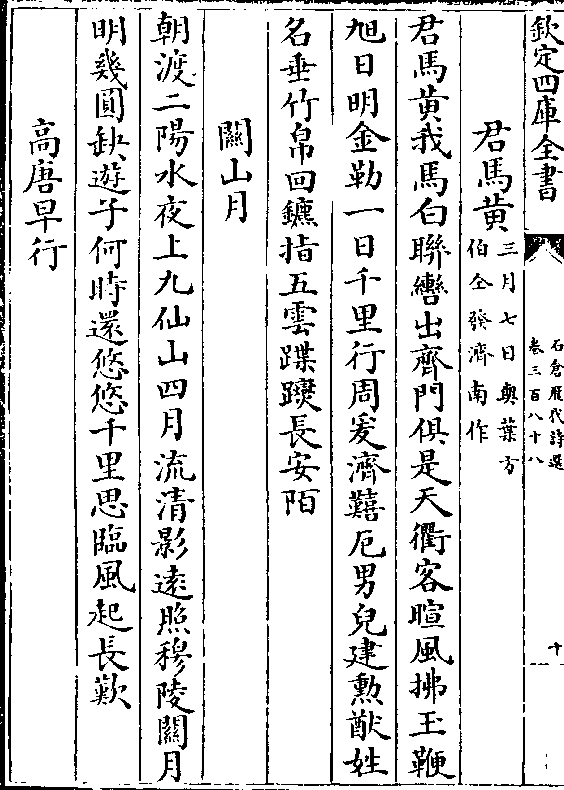 欽定四庫全書
石倉歷代詩選
卷三百八十八
十
君馬黄
三月七日與葉方
伯仝發濟南作
君馬黄我馬白聯轡出齊門俱是天衢客暄風拂玉鞭
旭日明金勒一日千里行周爰濟囏厄男兒建勲猷姓
名垂竹帛回鑣指五雲蹀躞長安陌
關山月
朝渡二陽水夜上九仙山四月流清影遠照穆陵關月
明幾圓缺遊子何時還悠悠千里思臨風起長歎
高唐早行